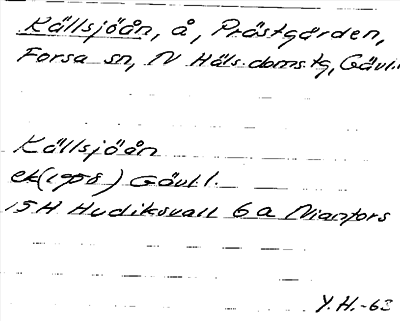 Källsjöån, å, Prästgården,
Forsa sn, N Häls. doms.tg, Gävl.l
Källsjöån
ek(1958) Gävl.l.
15H Hudiksvall 6a Nianfors
Y.H.-63